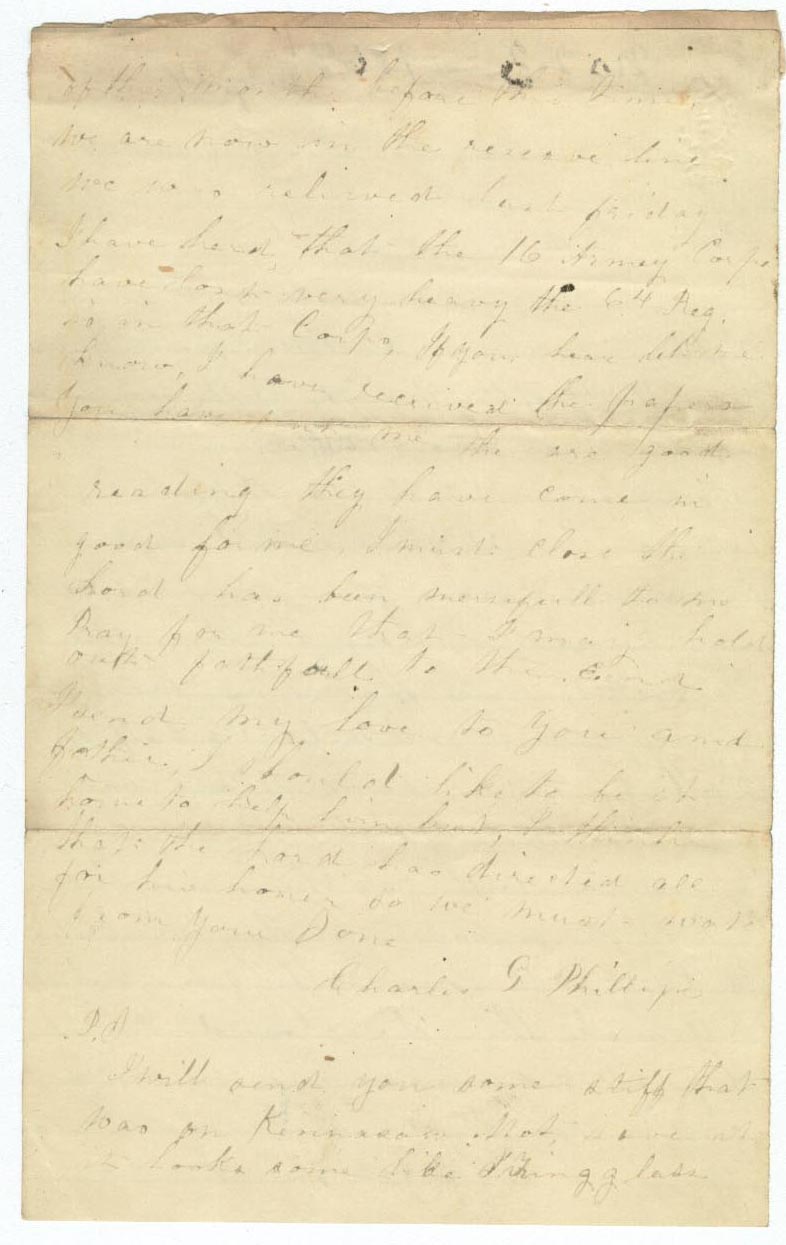 of this month before this time
we are now in the reserve line
we was relieved last friday
I have herd that the 16 Armey Corps
have lost very heavy the 64 Reg.
is in that Corps, If you hear let me
know, I have received the papers
You have sent me the are good
reading they have come in
good for me, I must close the
Lord has been mercifull to me
Pray for me that I may hold
out fathfull to the End
I send my love to you and
father, I should like to be at
home to help him but I think
that the Lord has directed all
for his honer so we must wait
from your Sone
Charles G Phillips
P.S
I will send you some stiff that
was on Kennasaw Mot, save it
it looks some like Ising glass